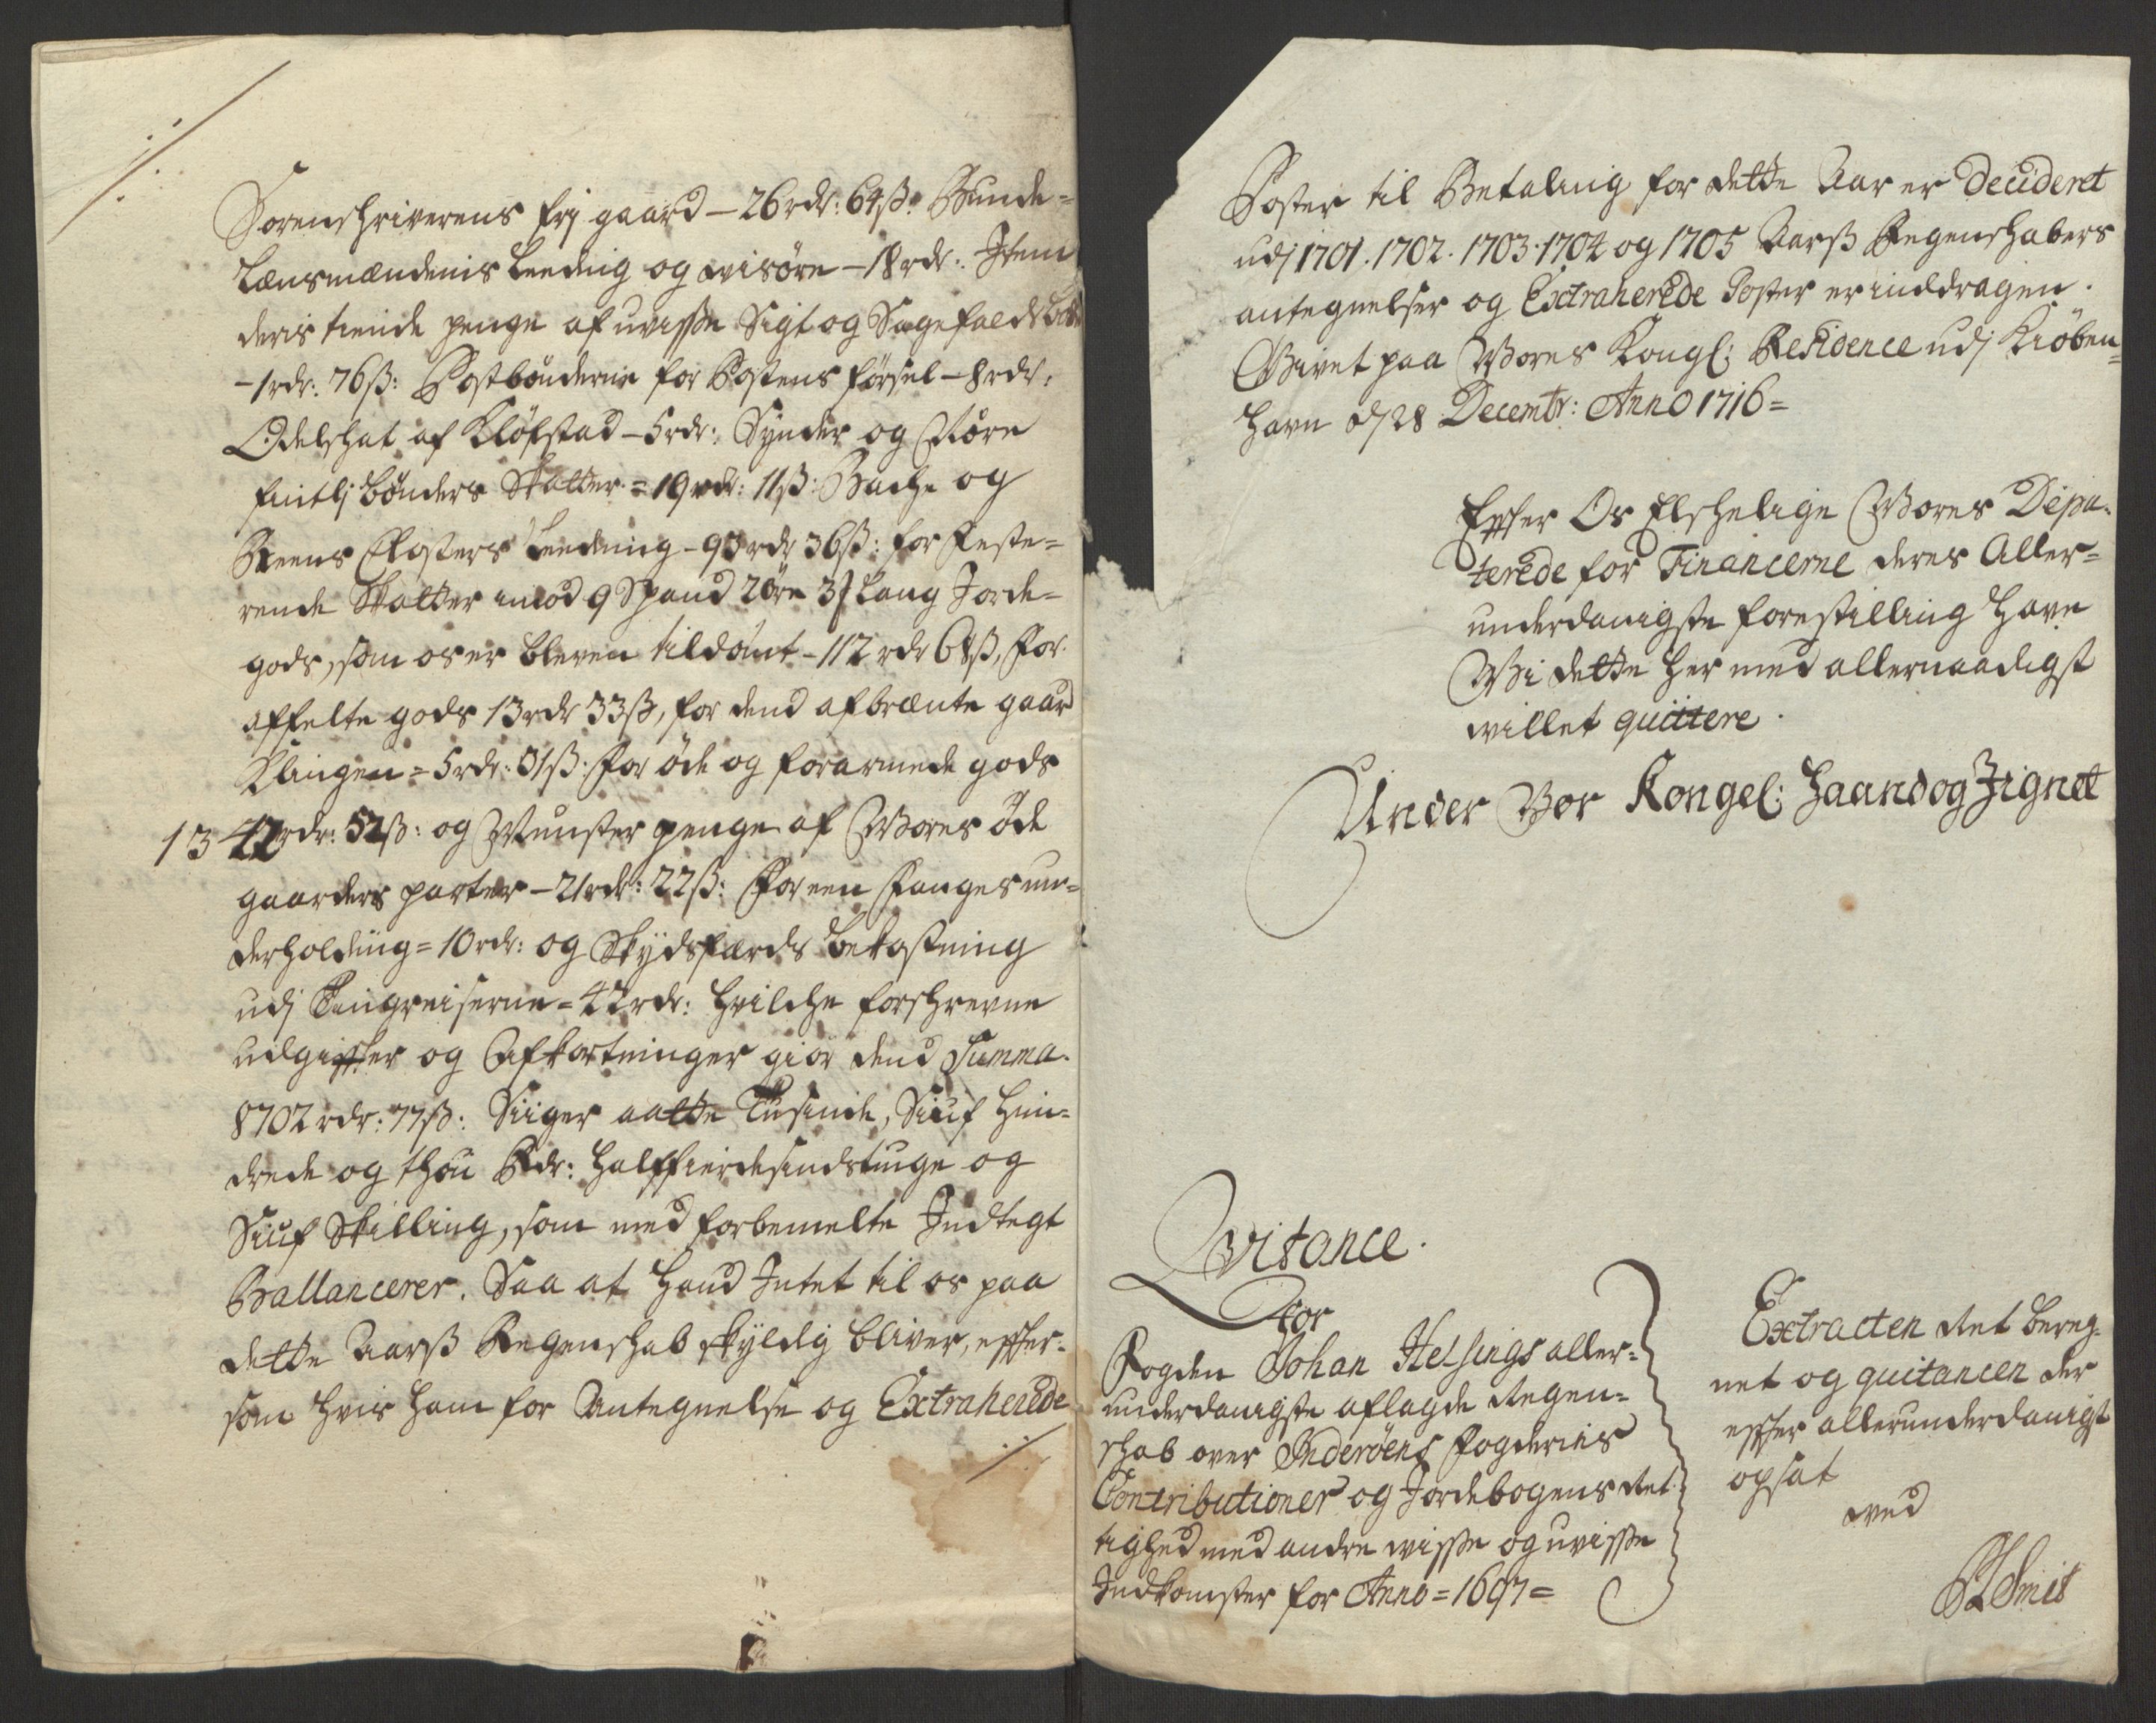 ./.
Sorenschriverens frj gaard – 26 rdr: 64 ß: Bunde=
Lænsmændenis Leeding og wisöre – 18 rdr: Item
deris tiende penge af uvisse Sigt og Sagefalds
– 1 rdr: 76 ß: Postbönderne for Postens försel – 8 rdr:
Odelschat af Klöfstad – 5 rdr: Synder og Störe
finlj bönders Skatter = 19 rdr: 11 ß: Bache og
Reens Closters Leeding – 93 rdr 36 ß: for Feste=
rende Skatter imod 9 Spand 2 öre 3 Laug Jorde=
gods, som os er bleven tildömt – 112 rdr 68 ß, For
affelte gods 13 rdr 33 ß, for dend afbrænte gaard
Klingen = 5 rdr: 31 ß: For öde og forarmede gods
1342 rdr: 52 ß: og Munster penge af Wores öde
gaarders parter – 21 rdr: 22 ß: For een Fanges un=
derholding = 10 rdr: og Skydsfærds bekostning
udj Tingreiserne = 42 rdr: hvilche forschrevne
udgiffter og Afkortninger giör dend Summa
8702 rdr: 77 ß: Siiger aatte Tusinde, Siuf hun=
drede og thou Rdr: halffierdesindstiuge og
Siuf Skilling, som med forbemelte Indtegt
Ballancerer. Saa at hand Intet til os paa
dette Aarß Regenschab skyldig bliver, effter=
som hvis ham for Antegnelse og Extraherede
./.
Poster til Betaling for dette Aar er Decideret
udj 1701. 1702. 1703. 1704 og 1705 Aarß Regenschabers
antegnelser og Extraherede Poster er inddragen.
Givet paa Wores Kongl: Residence udj Kiöben=
havn d 28 Decembr: Anno 1716 =
Effter Os Elschelige Wores Depu=
terede for Financerne deres Aller=
underdanigste forestilling have
Wi dette her med allernaadigst
willet quittere.
Under Vor Kongel: Haand og Zignet
Qvitance.
For
Fogden Johan Helsings aller=
underdanigste aflagde Regen=
schab over Inderöens Fogderies
Contributioner og Jordebogens Ret
tighed med andre wisse og uvisse
Indkomster for Anno = 1697 =
Extracten Ret bereg=
net og quitancen der
effter allerunderdanigst
opsat
ved
Smit